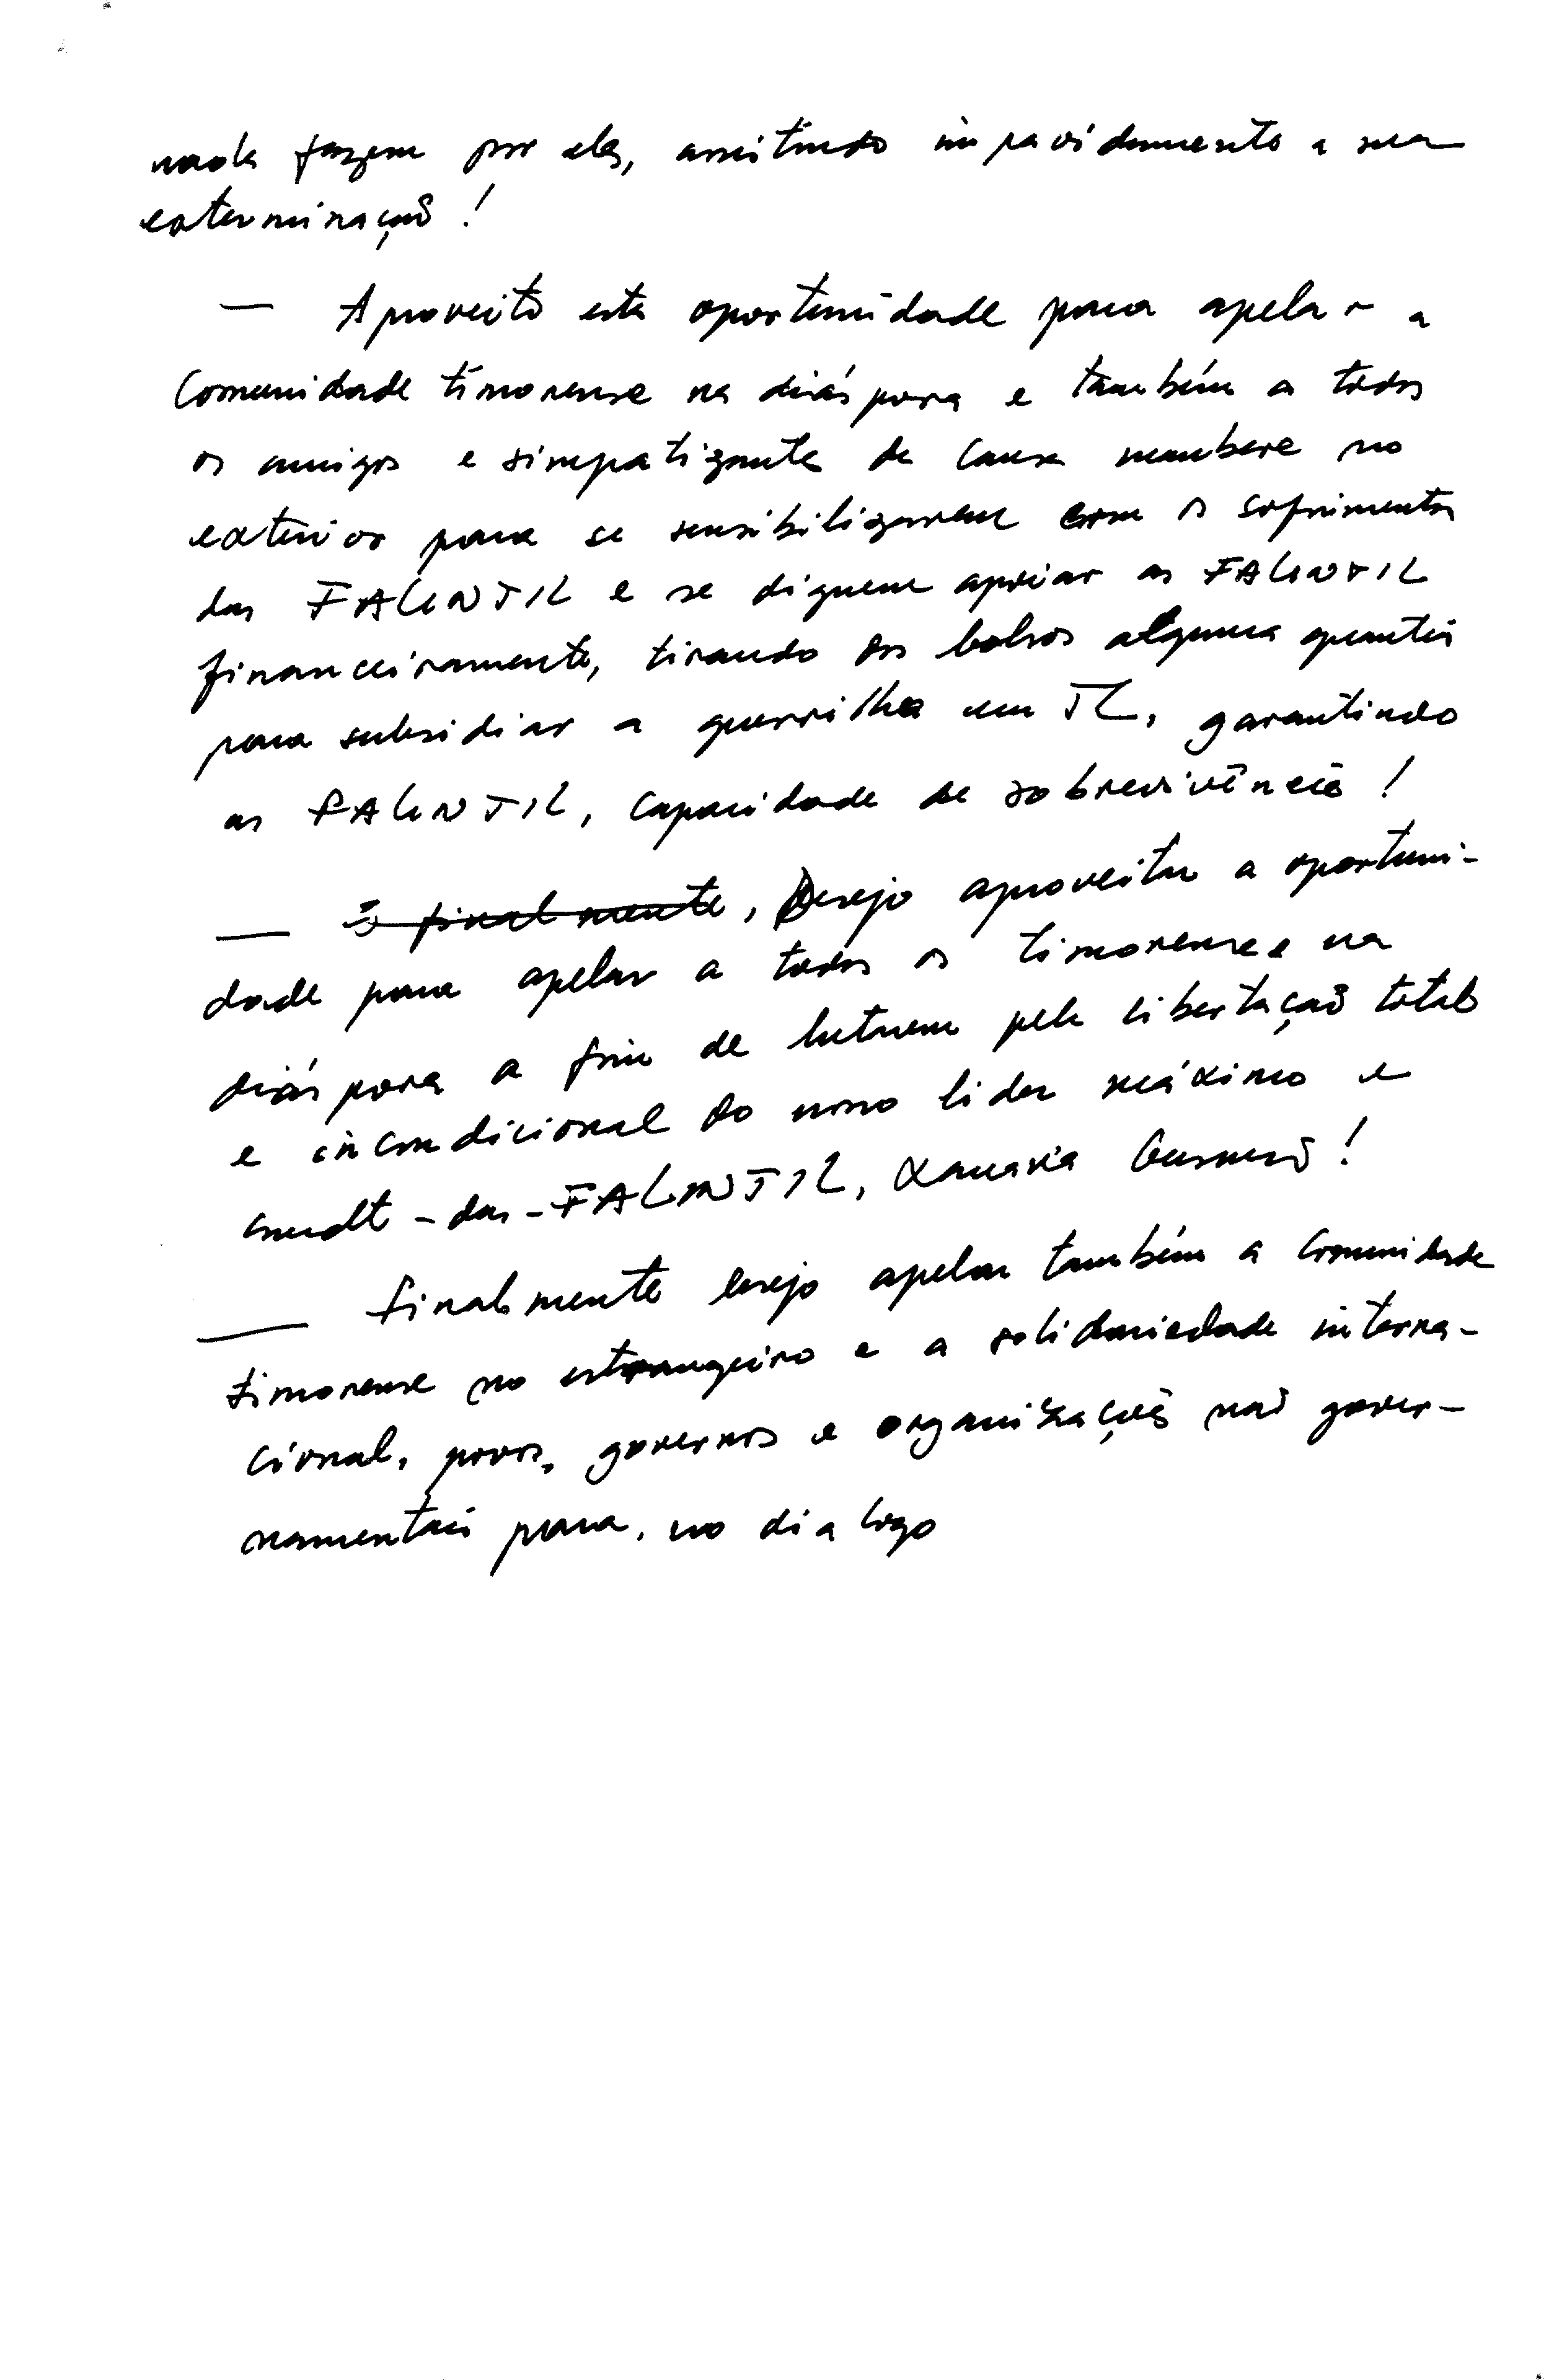 nada fazem por elas, assistindo impavidamente a sua
exterminação!
— Aproveito esta oportunidade para apelar a
Comunidade timorense na diáspora e também a todos
os amigos e simpatizantes da Causa maubere no
exterior para se sensibilizarem com o sofrimento
das FALINTIL e se dignem apoiar as FALINTIL
financeiramente, tirando dos bolsos alguma quantia
para subsidiar a guerrilha em TL, garantindo
as FALINTIL, capacidade de sobrevivência!
— E finalmente, Desejo aproveitar a oportuni-
dade para apelar a todos os timorenses na
diáspora a fim de lutarem pela libertação total
e incondicional do nosso lider máximo e
cmdt-das-FALINTIL, Xanana Gusmão!
— Finalmente desejo apelar também a Comunidade
timorense no estrangeiro e a solidariedade interna-
cional, povos, governos e organizações não gover-
namentais para, no dialogo